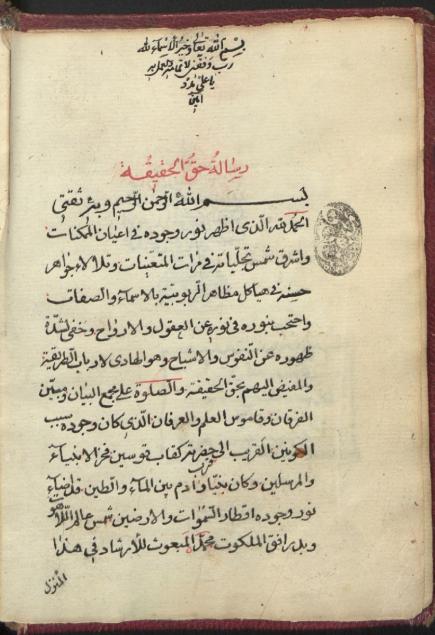 بسم الله تعالى وخير الأسماء لله
رب وفقني لاتمامه
يا علي مدد
آمين
رسالة حق الحقيقة
بسم الله الرحمن الرحيم وبه ثقتي
الحمد لله الذي اظهر نور وجوده في اعيان الممكنات
واشرق شمس تجلياته في مرات المتعينات وتلالاء جواهر
حسنه في هياكل مظاهر الربوبية بالاسماء والصفات
واحتجب بنوره في نوره عن العقول والارواح وخفي لشدة
ظهوره عن النفوس والاشباح وهو الهادي لارباب الطريقة
والمفيض اليهم بحق الحقيقة والصلوة على مجمع البيان ومبين
الفرقان وقاموس العلم والعرفان الذي كان وجوده سبب
الكونين القريب الى حضرته كقاب قوسين فخر الانبياء
والمرسلين وكان نبيا وادم بين الماء والطين قد اضاء
نور وجوده اقطار السموات والارضين شمس عالم اللاهوت
وبدر افق الملكوت محمد المبعوث للارشاد في هذا
المنزل